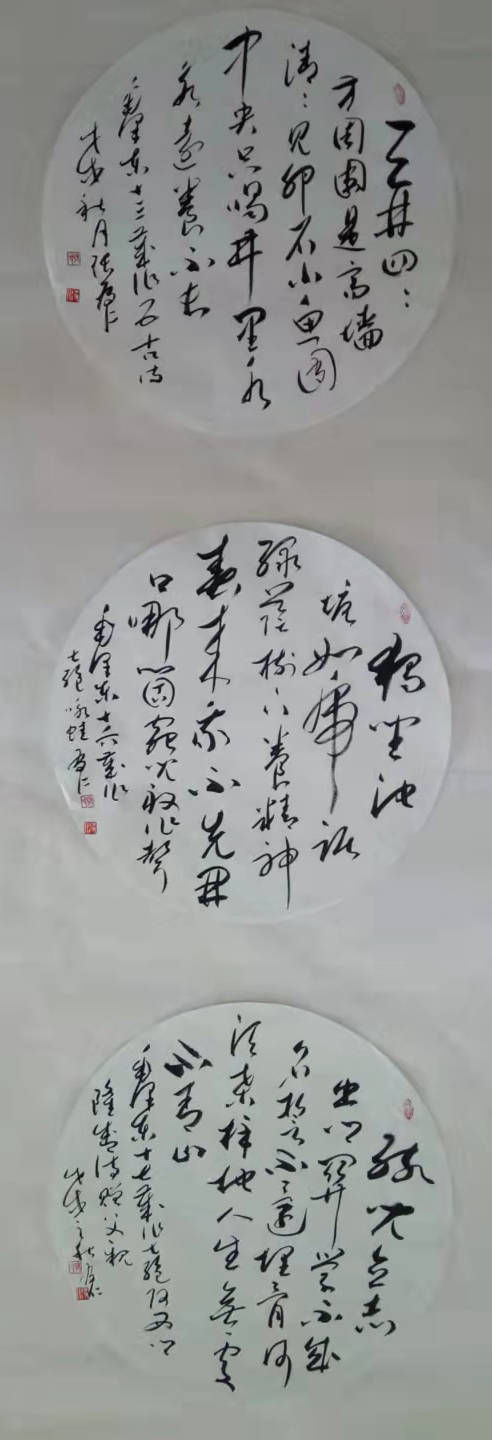 天井四々
方周围是高墙
清々见卵石小鱼囿
中央只喝井里水
永远养不长
毛泽东十三岁作五古诗
戊戌秋月张仁
独坐池
塘如虎踞
绿荫树下养精神
春来我不先开
口哪个虫儿敢作声
毛泽东十六岁作
七绝咏蛙仁
孩儿立志
出乡関学不成
名誓不还埋骨何
须桑梓地人生无处
不青山
毛泽东十七岁作七绝改西乡
隆盛诗赠父亲
戊戌之秋仁